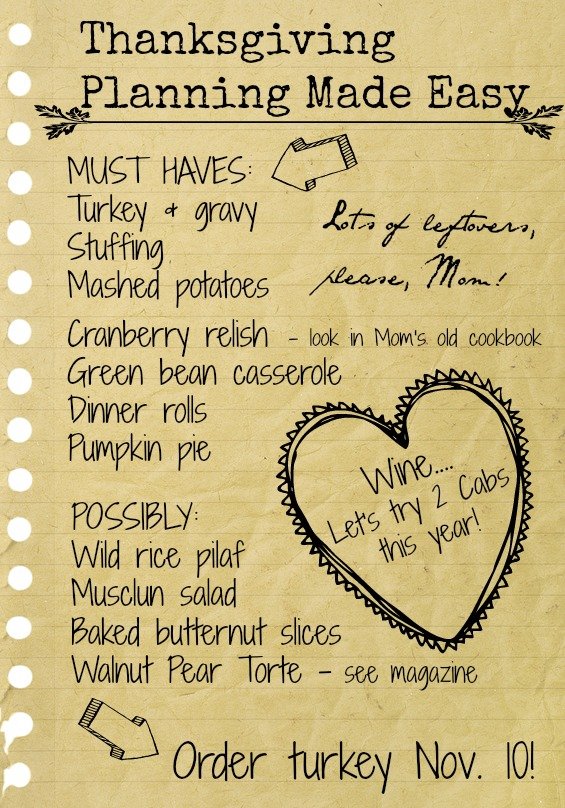 Thanksgiving
Planning Made Easy
MUST HAVES:
Turkey & gravy
Stuffing
Mashed potatoes
Lots of leftovers,
please, Mom!
Cranberry relish - look in Mom's old cookbook
Green bean casserole
Dinner rolls
Pumpkin pie
Wine....
Let's try 2 Cabs
this year!
POSSIBLY:
Wild rice pilaf
Musclun salad
Baked butternut slices
Walnut Pear Torte - see magazine
Order turkey Nov. 10!